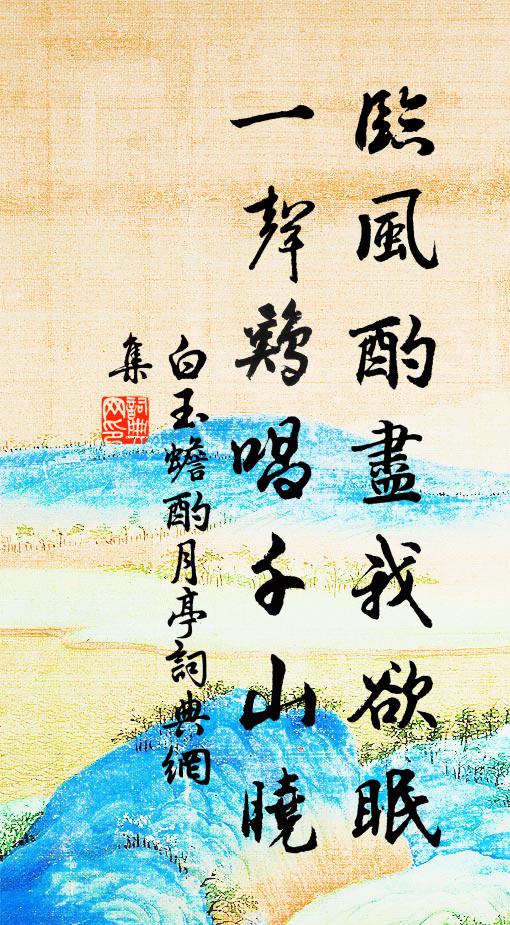 臨風酌盡我欲眠
一聲鷄唱千山曉
白玉蟾酌月亭詞典網
集
詞典網印